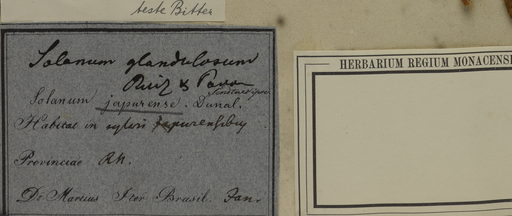 teste Bitter
Solanum glandulosum
Ruiz & Pavon
Solanum japurense. Dunal.
Habitat in sylvis Japurensibus
Provinciae Rio N.
Dr. Martius Iter Brasil. Jan.
HERBARIUM REGIUM MONACENSE